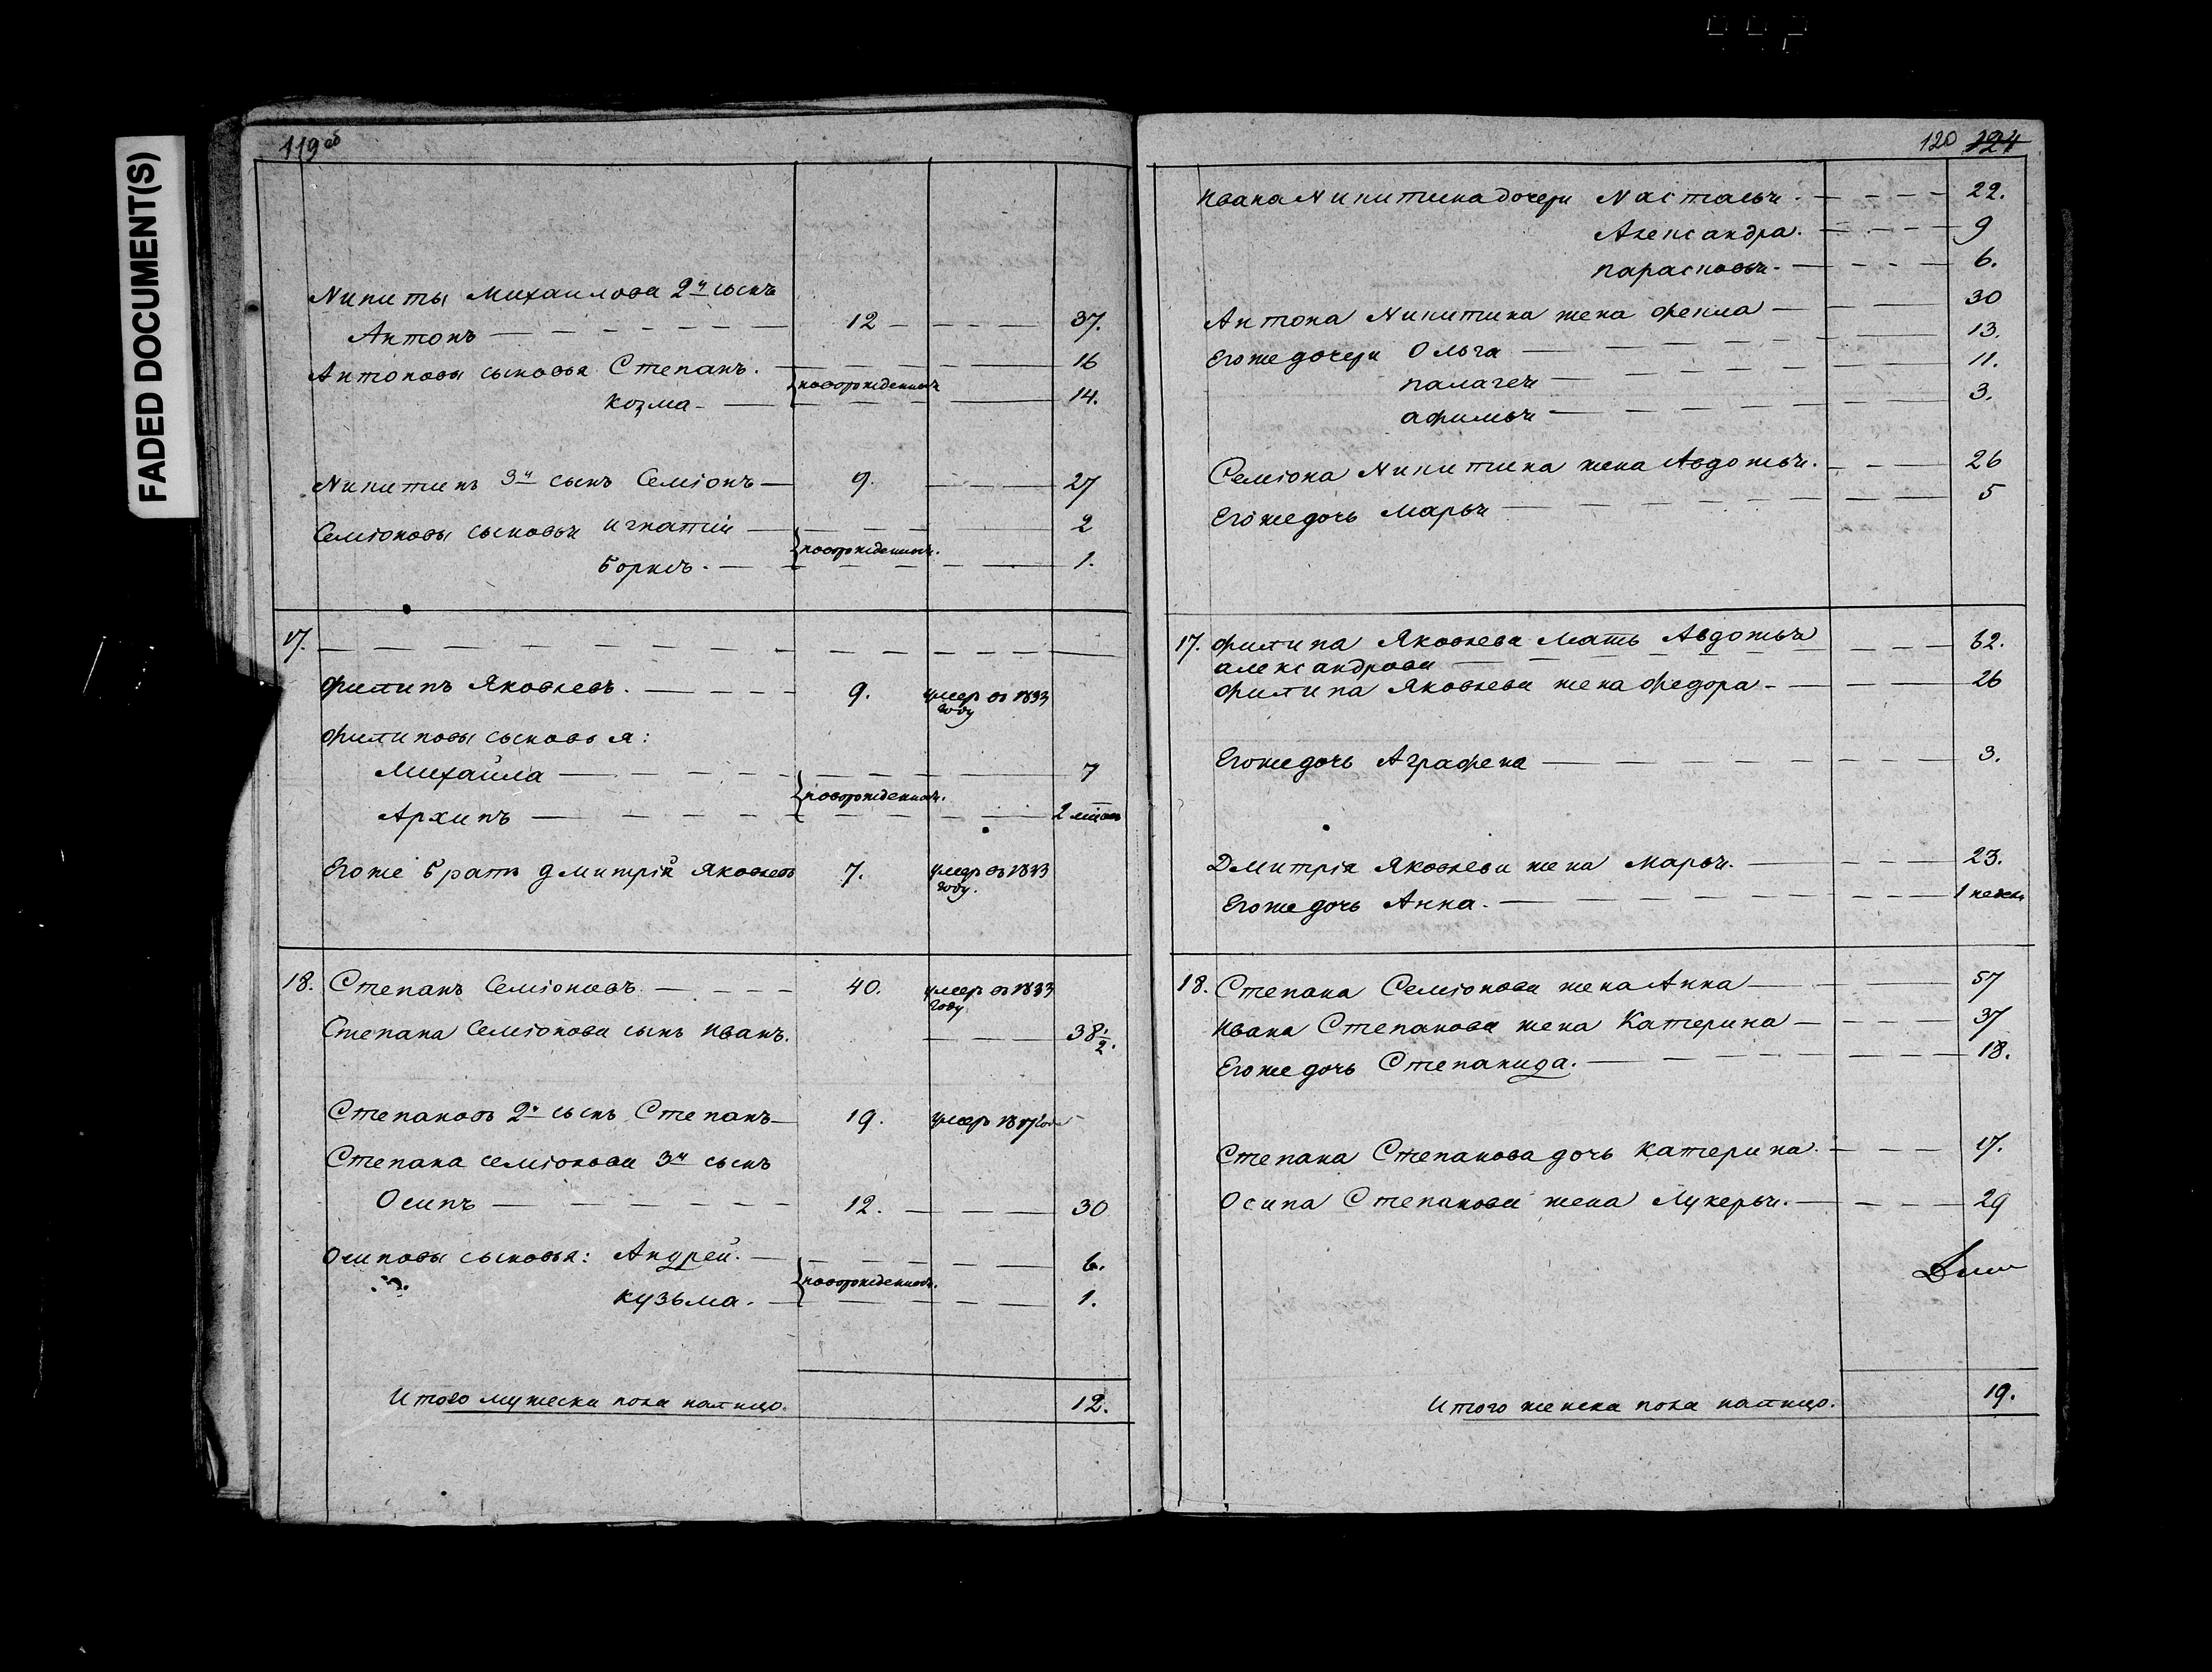 FADED DOCUMENT(S)
119 об
Никиты Михаилова 2й сынъ
Антонъ 12 37.
Антоновы сыновья Степанъ. 16
новорожденныя
Козма 14.
Никитинъ 3й сынъ Семіонъ 9. 27
Семіоновы сыновьи Игнатіи 2
новорожденныя.
Борисъ. 1.
17.
Филипъ Яковлевъ. 9. умеръ въ 1833
году
Филиповы сыновья:
Михайла 7
новорожденныя.
Архипъ 2
Егоже братъ Дмитрій Яковлевъ 7. умеръ въ 1833
году.
18. Степанъ Семіоновъ 40. умеръ въ 1833
году
Степана Семіонова сынъ Иванъ. 38 1/2.
Степановъ 2й сынъ Степанъ 19. умеръ
Степана Семіонова 3й сынъ
Осипъ 12. 30
Осиповы сыновья: Андрей. 6.
новорожденныя.
Кузьма. 1.
Итого мужеска пола налицо. 12.
120 124
Ивана Никитина дочери Настасьи. 22.
Александра. 9
Парасковьи. 6.
Антона Никитина жена Фекла 30
Егоже дочери Ольга 13.
Палагеи 11.
Афимьи 3.
Семіона Никитина жена Авдотьи. 26
Егоже дочь Марьи 5
17. Филипа Яковлева мать Авдотьи 62.
Александрова
Филипа Яковлева жена Федора 26
Егоже дочь Аграфена 3.
Дмитрія Яковлева жена Марьи. 23.
Егоже дочь Анна. 1 недели
18. Степана Семіонова жена Анна 57
Ивана Степанова жена Катерина 37
Егоже дочь Степанида. 18.
Степана Степанова дочь Катерина. 17.
Осипа Степанова жена Лукерьи. 29
Итого женска пола налицо. 19.